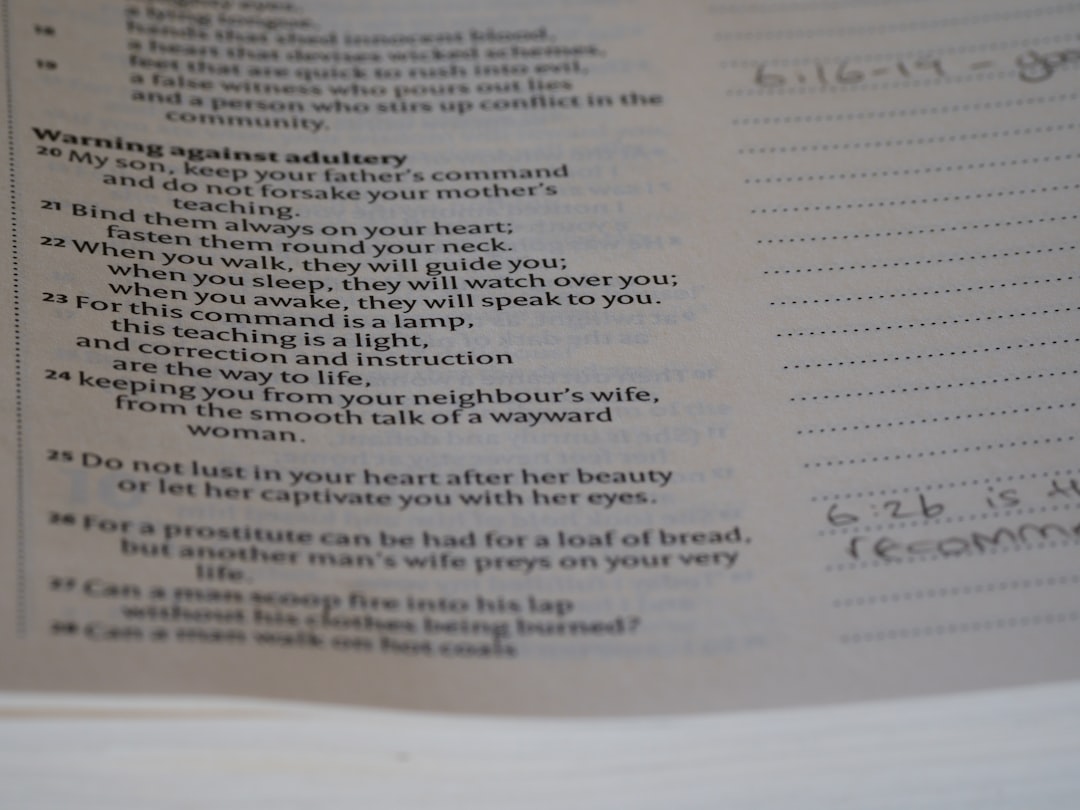 a lying tongue,
18 hands that shed innocent blood,
a heart that devises wicked schemes,
feet that are quick to rush into evil,
19 a false witness who pours out lies
and a person who stirs up conflict in the
community.
Warning against adultery
20 My son, keep your father's command
and do not forsake your mother's
teaching.
21 Bind them always on your heart;
fasten them round your neck.
22 When you walk, they will guide you;
when you sleep, they will watch over you;
when you awake, they will speak to you.
23 For this command is a lamp,
this teaching is a light,
and correction and instruction
are the way to life,
24 keeping you from your neighbour's wife,
from the smooth talk of a wayward
woman.
25 Do not lust in your heart after her beauty
or let her captivate you with her eyes.
26 For a prostitute can be had for a loaf of bread,
but another man's wife preys on your very
life.
27 Can a man scoop fire into his lap
without his clothes being burned?
28 Can a man walk on hot coals
6:16-19 -
6:26 is
recomm